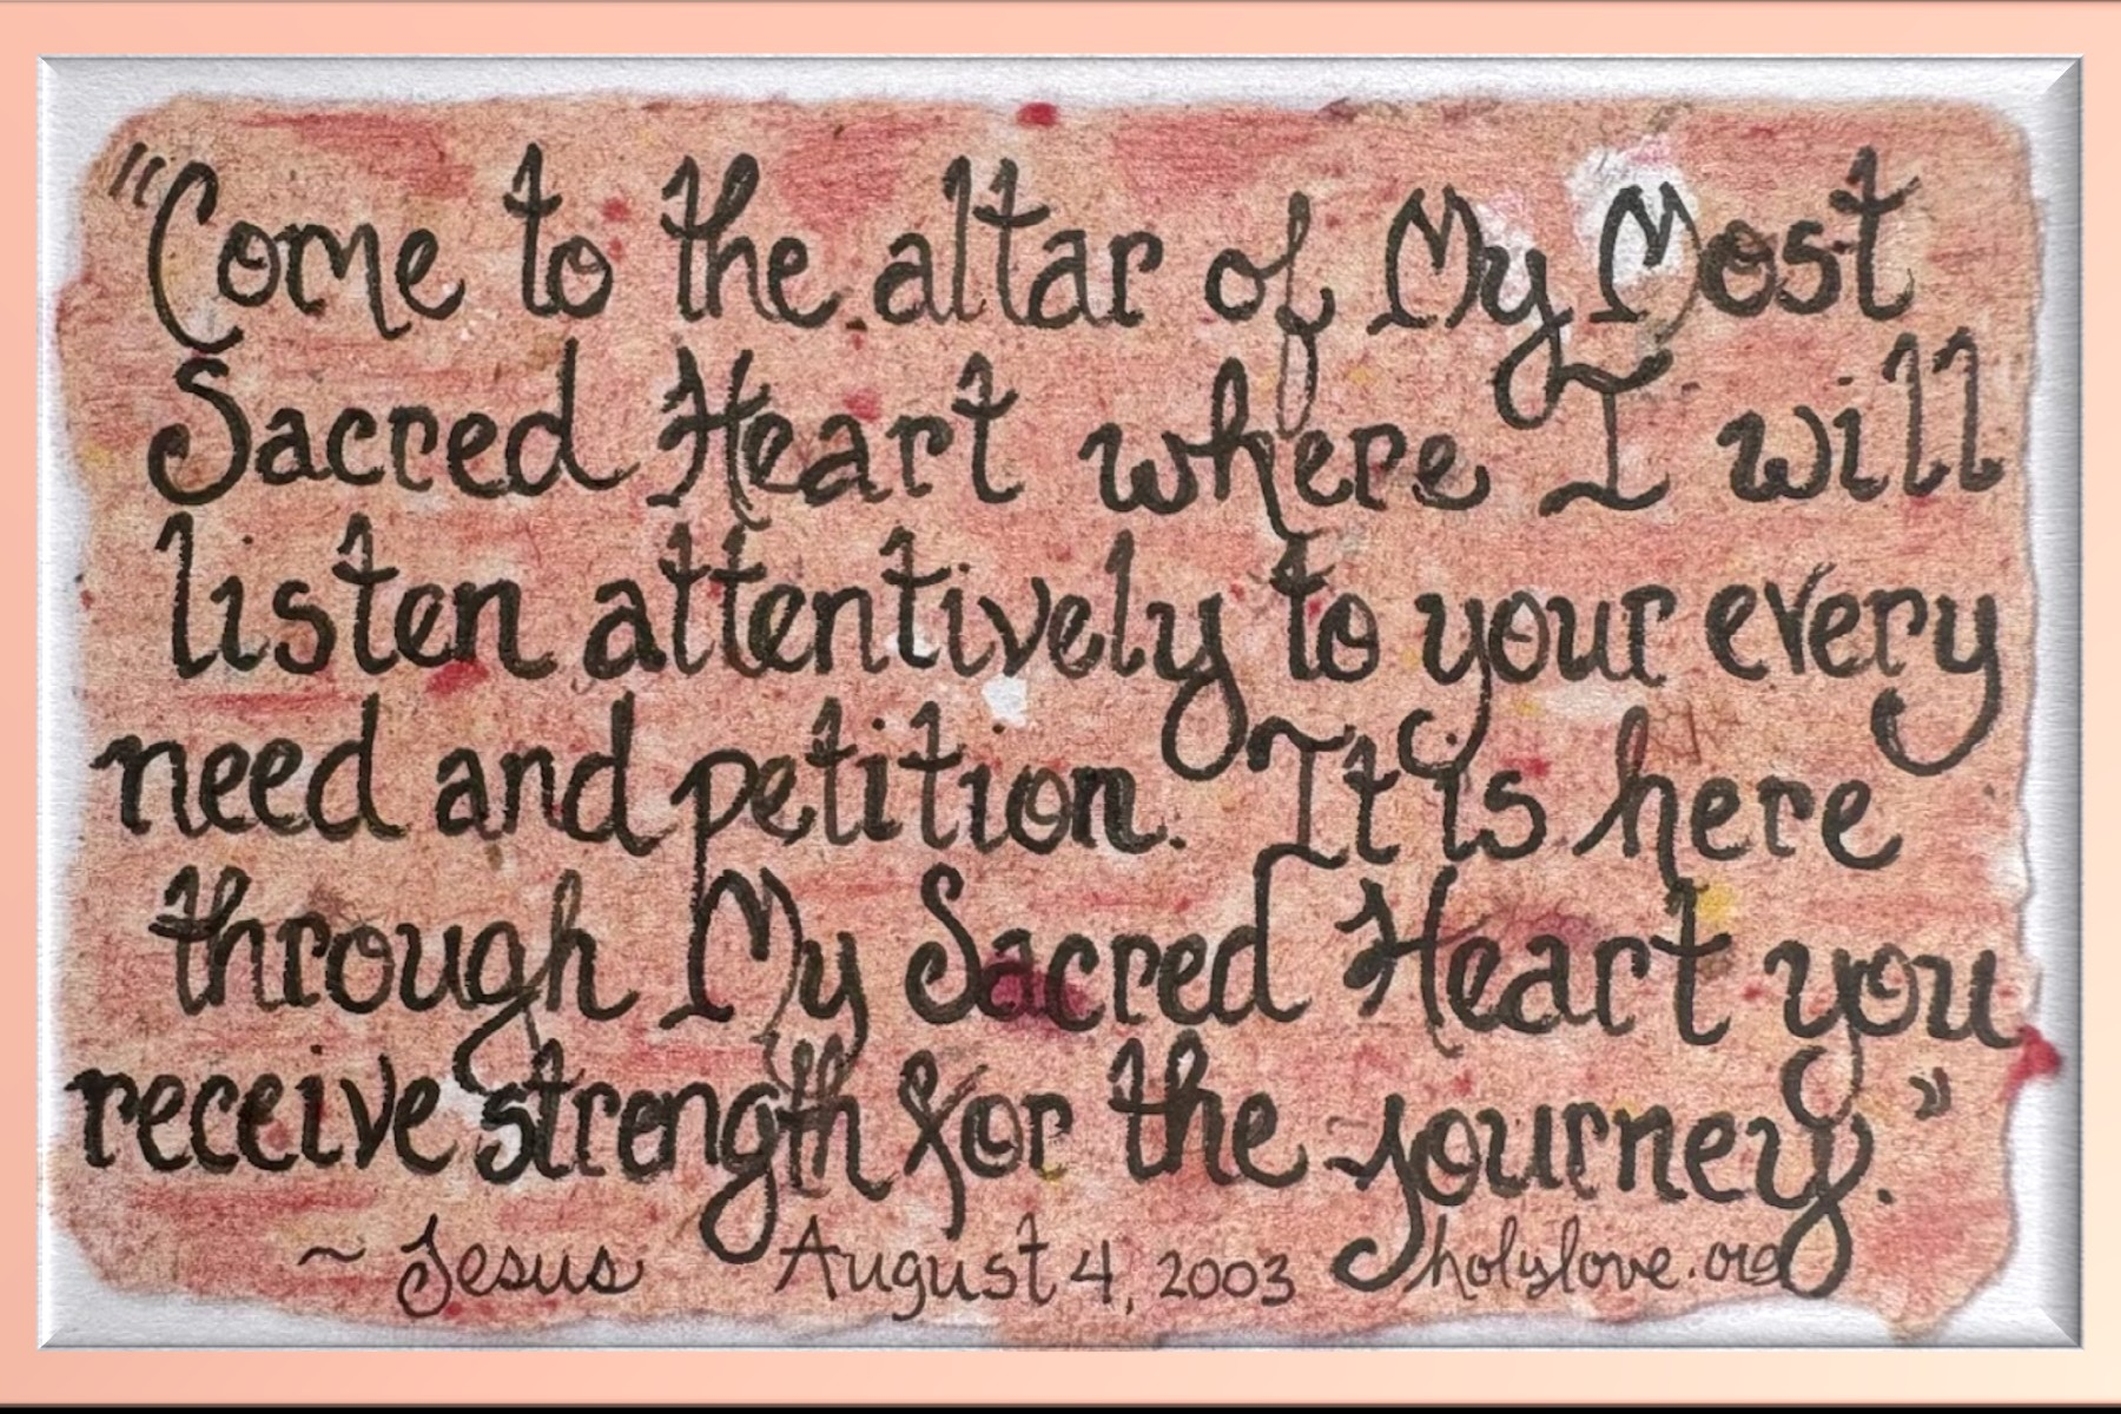 "Come to the altar of My Most
Sacred Heart where I will
listen attentively to your every
need and petition. It is here
through My Sacred Heart you
receive strength for the journey."
~ Jesus August 4, 2003 holylove.org